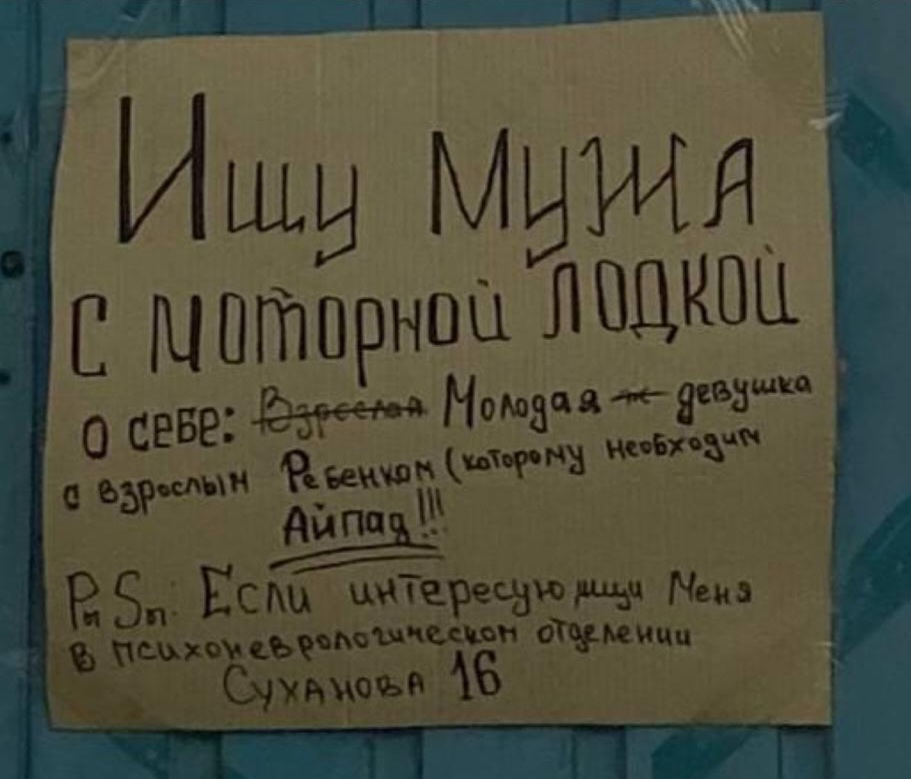 Ищу мужа
с моторной лодкой
О СЕБЕ: Взрослая Молодая ж девушка
с взрослым Ребенком (которому необходим
Айпад!!!
Ры Sы: Если интересую ищи Меня
в психоневрологическом отделении
СУХАНОВА 16